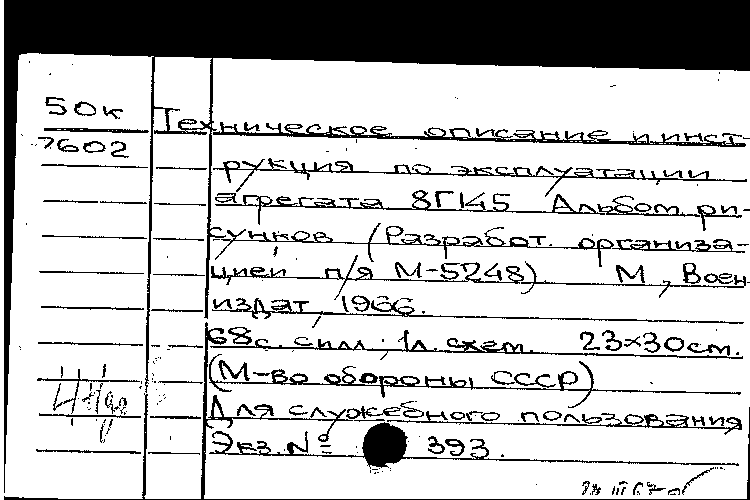 50к
7602
Техническое описание и инст-
рукция по эксплуатации
агрегата 8Г145 Альбом ри-
сунков (Разработ. организа-
цией п/я М-5248). М, Воен
издат, 1966.
68с. с илл; 1л. схем. 23×30см.
(М-во обороны СССР)
Для служебного пользования
Экз. № 393.